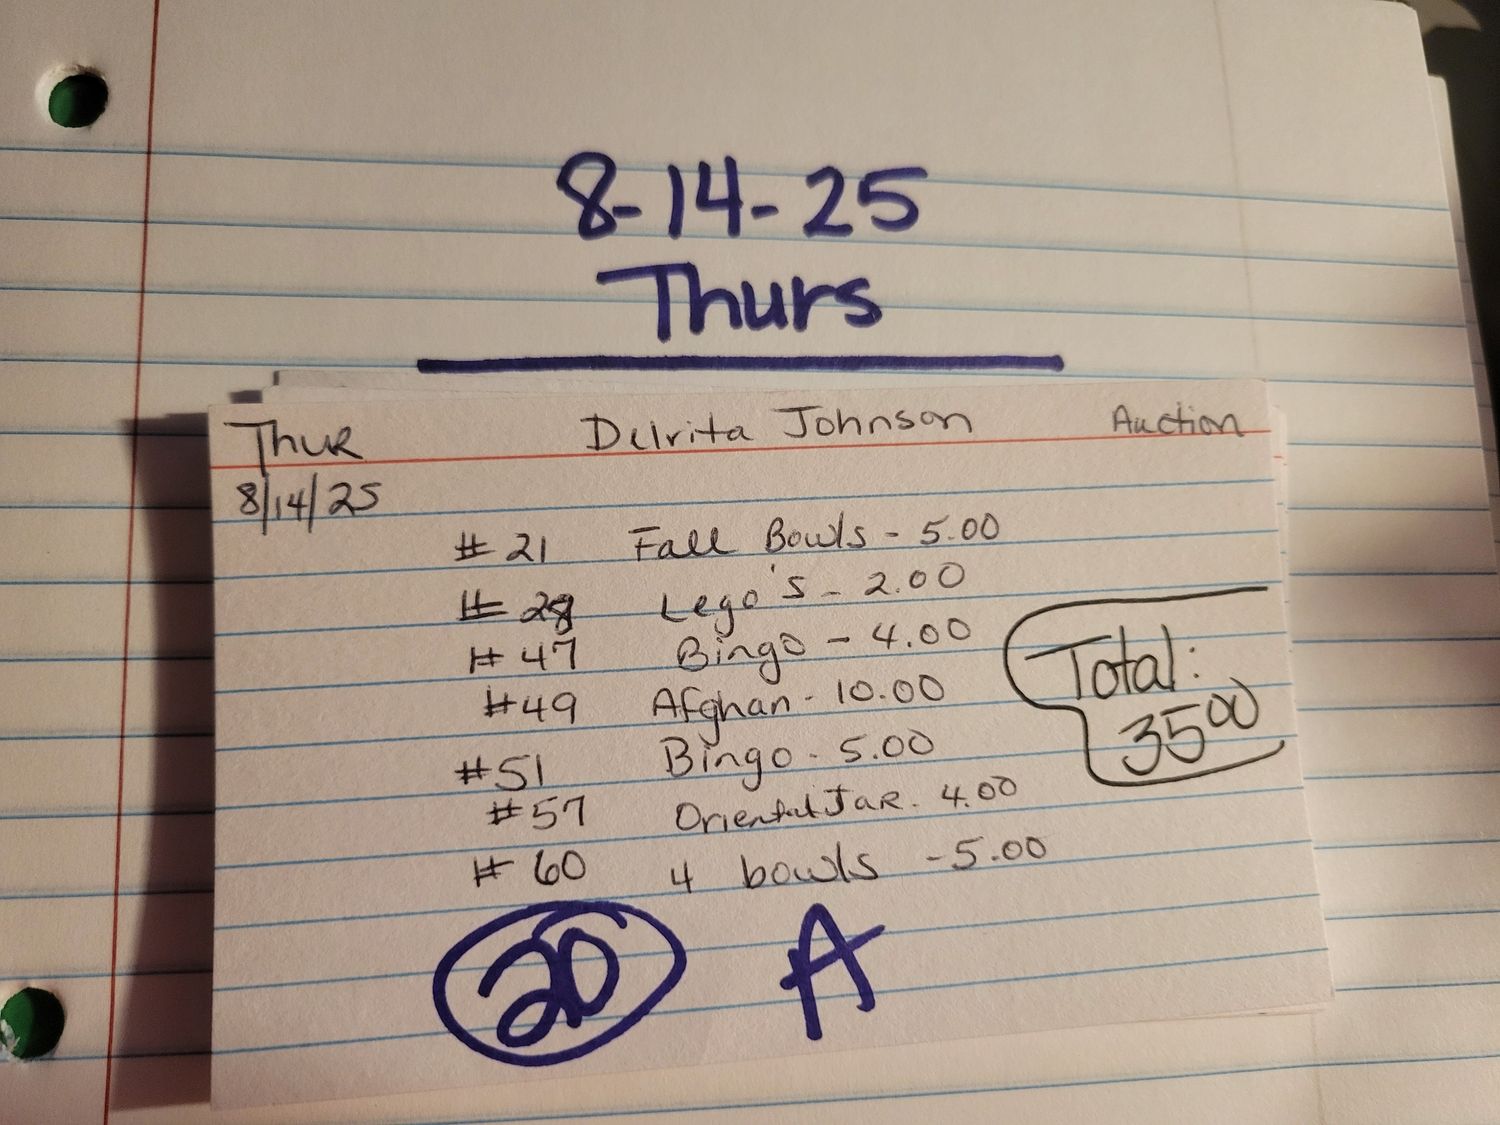 8-14-25
Thurs
Thur Delrita Johnson Auction
8/14/25
# 21 Fall Bowls - 5.00
# 28 Lego's - 2.00
# 47 Bingo - 4.00
#49 Afghan - 10.00
#51 Bingo - 5.00
#57 Oriental Jar - 4.00
# 60 4 bowls - 5.00
Total:
35 00
20 A